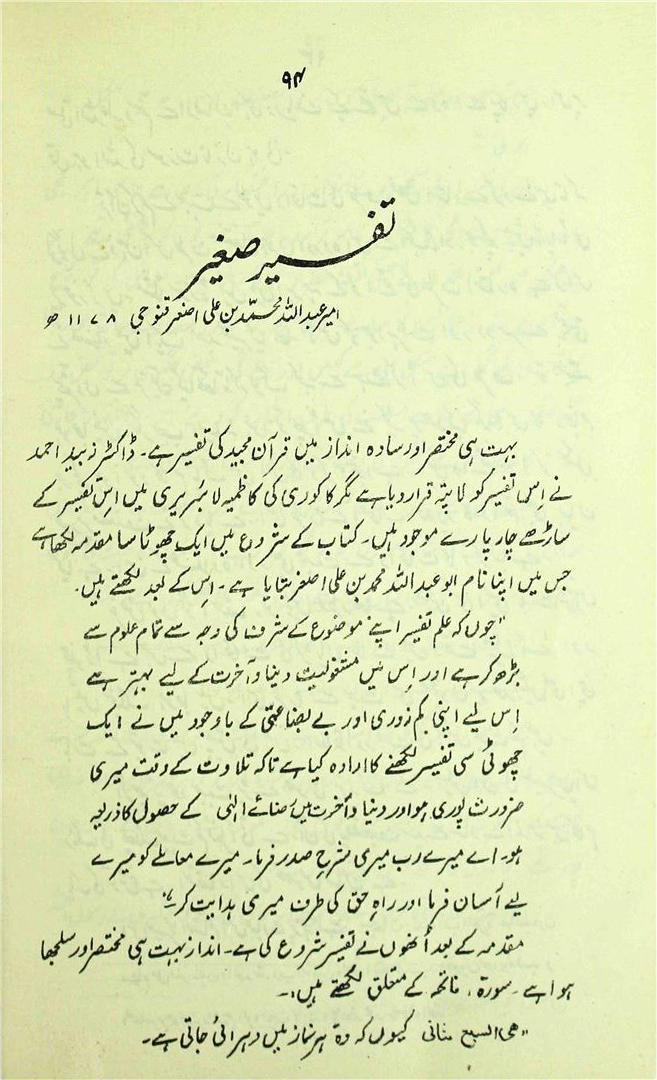 ۹۴
تفسیر صغیر
امیر عبداللہ محمد بن علی اصغر قنوجی ۱۱۷۸ھ
بہت ہی مختصر اور سادہ انداز میں قرآن مجید کی تفسیر ہے۔ ڈاکٹر زبید احمد
نے اِس تفسیر کو لاپتہ قرار دیا ہے مگر کاکوری کی کاظمیہ لائبریری میں اس تفسیر کے
ساڑھے چار پارے موجود ہیں۔ کتاب کے شروع میں ایک چھوٹا سا مقدمہ لکھا ہے
جس میں اپنا نام ابو عبداللہ محمد بن علی اصغر بتایا ہے۔ اِس کے بعد لکھتے ہیں۔
"چوں کہ علم تفسیر اپنے موضوع کے شرف کی وجہ سے تمام علوم سے
بڑھ کر ہے اور اِس میں مشغولیت دنیا و آخرت کے لیے بہتر ہے
اِس لیے اپنی کم زوری اور بے بضاعتی کے باوجود میں نے ایک
چھوٹی سی تفسیر لکھنے کا ارادہ کیا ہے تاکہ تلاوت کے وقت میری
ضرورت پوری ہو اور دنیا و آخرت میں رضائے الٰہی کے حصول کا ذریعہ
ہو۔ اے میرے رب میری شرحِ صدر فرما۔ میرے معاملے کو میرے
لیے آسان فرما اور راہِ حق کی طرف میری ہدایت کر۔"
مقدمہ کے بعد اُنھوں نے تفسیر شروع کی ہے۔ انداز بہت ہی مختصر اور سلجھا
ہوا ہے۔ سورۃ، فاتحہ کے متعلق لکھتے ہیں:۔
"ھی السبع مثانی کیوں کہ وہ ہر نماز میں دہرائی جاتی ہے۔